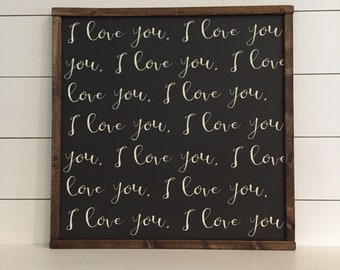 I love you. I love you
you. I love you. I love
love you. I love you.
I love you. I love you
you. I love you. I love
love you. I love you.
I love you. I love you